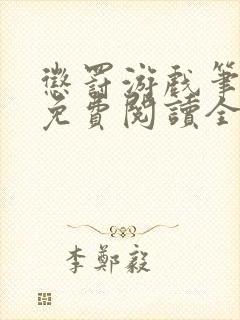 懲罰游戲筆
免費閱讀全
李鄭毅